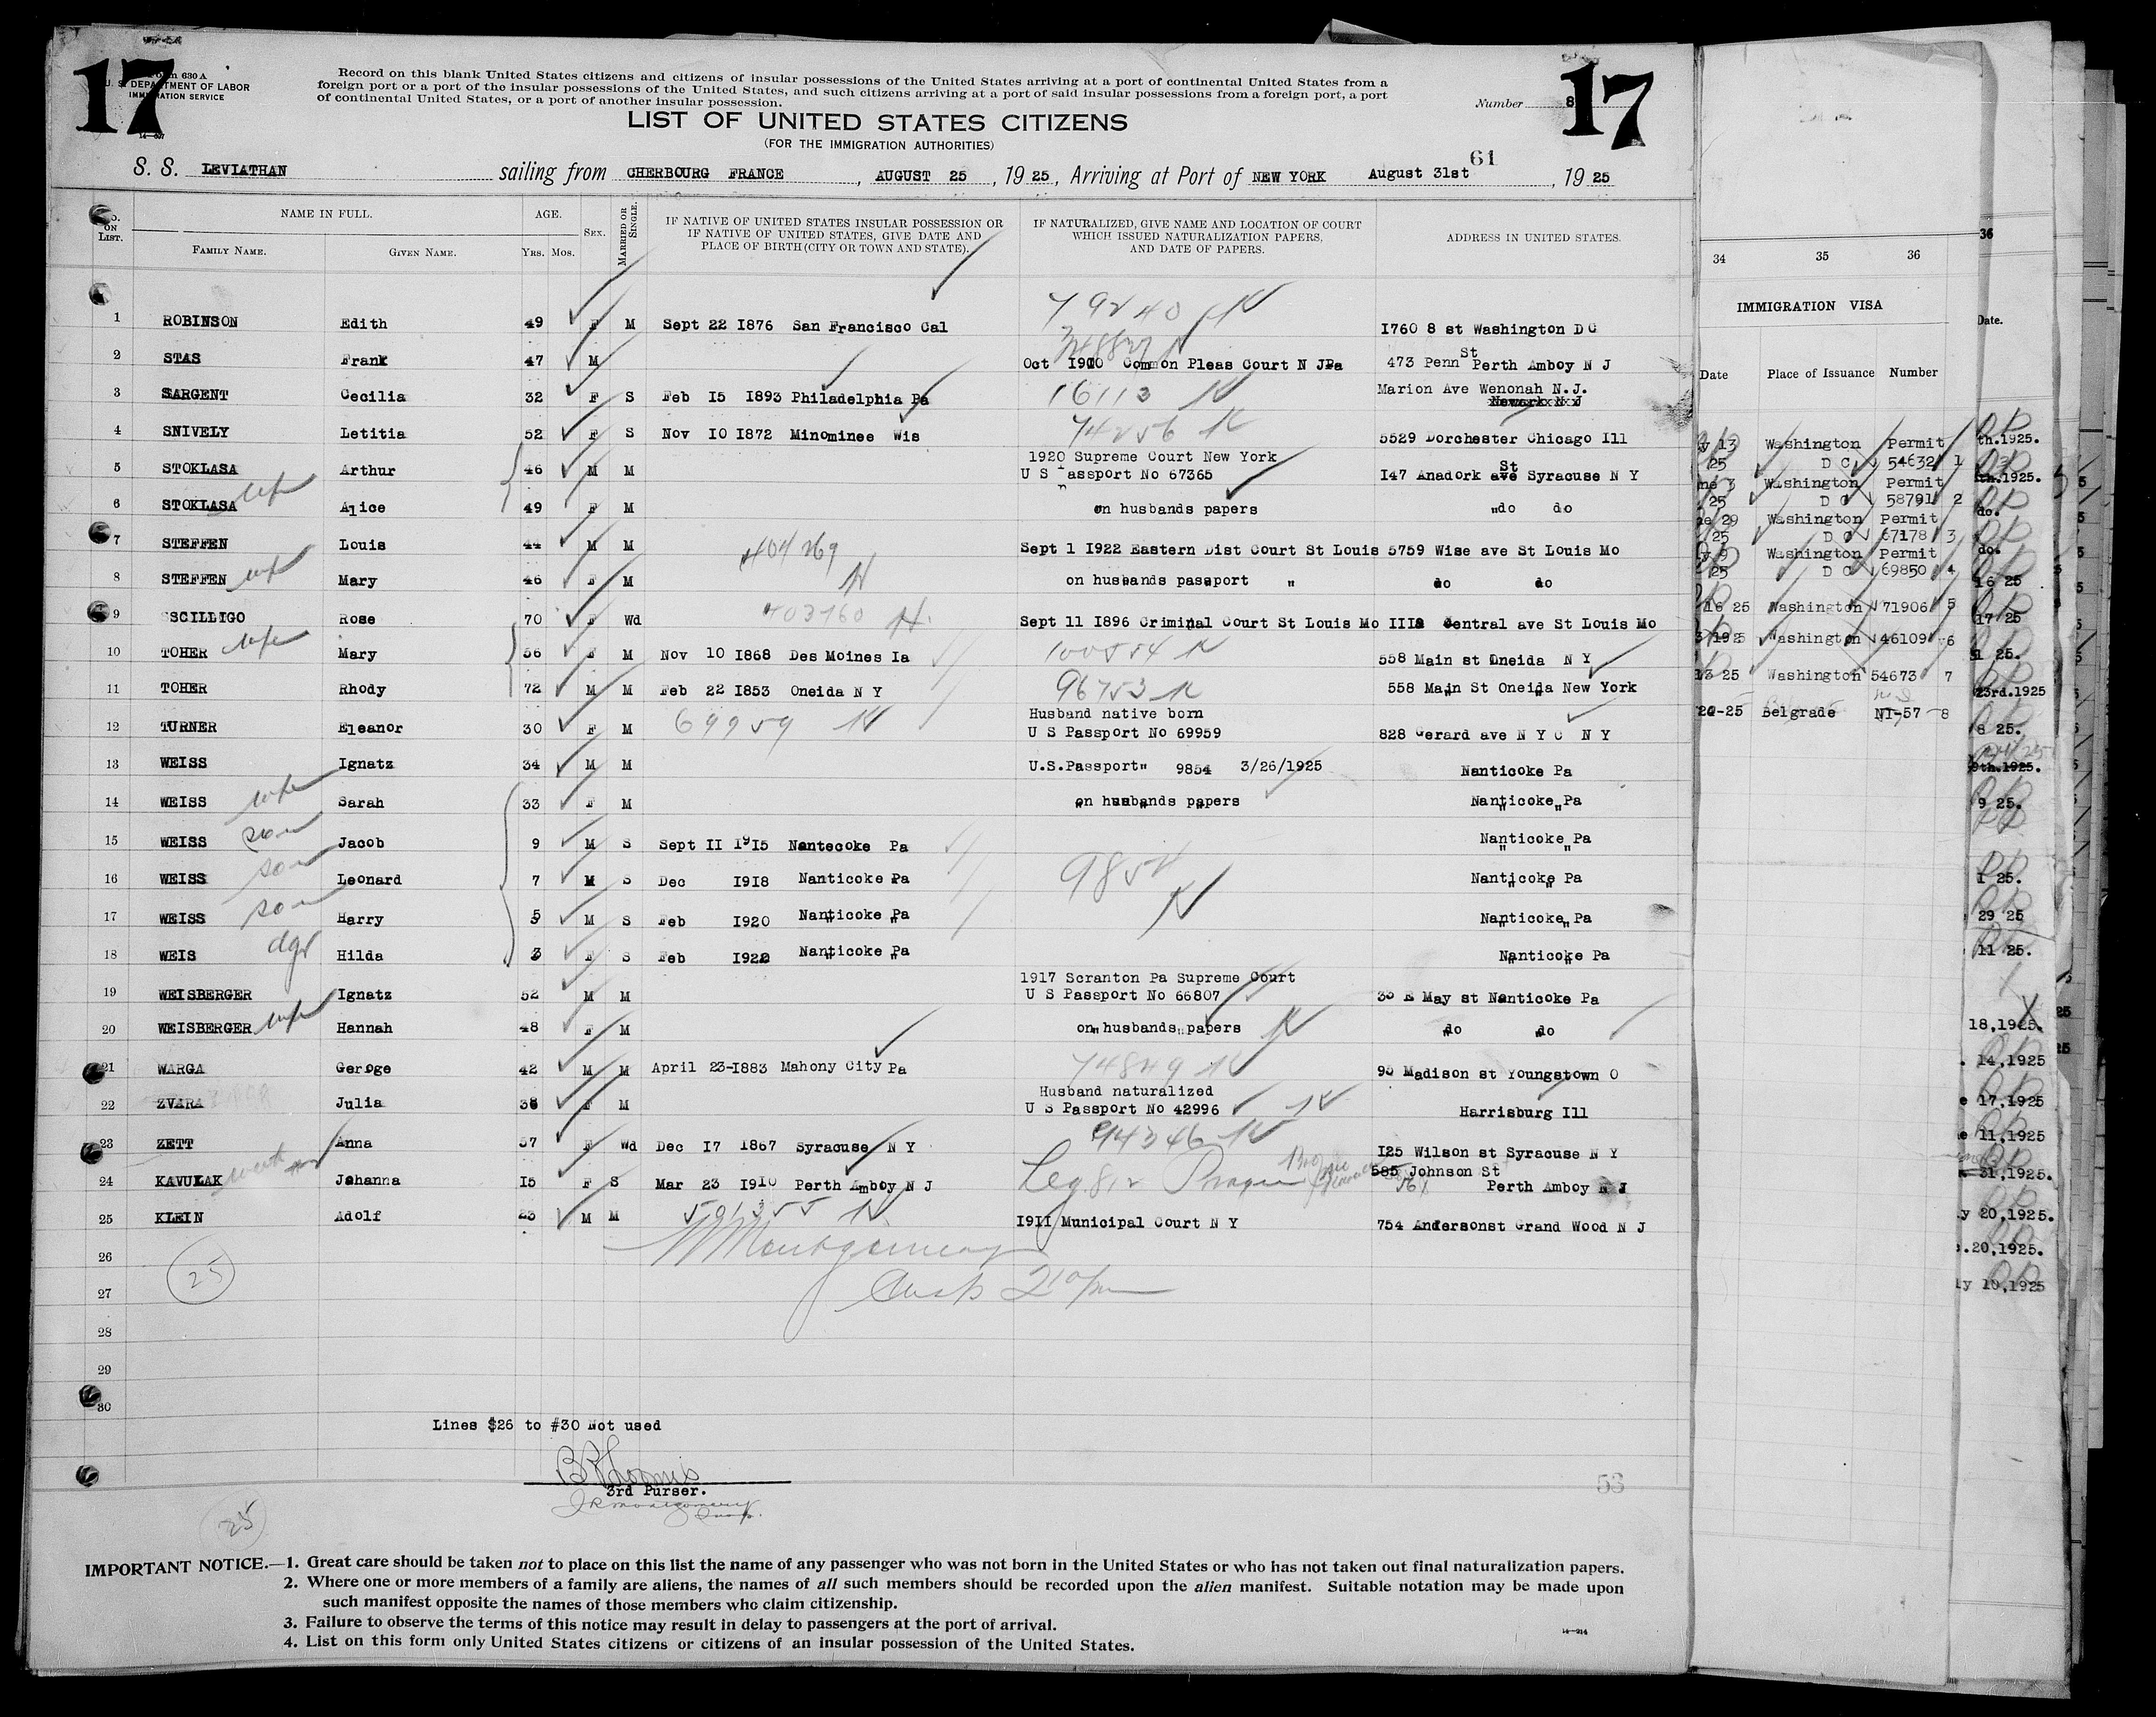 17
Form 630 A
U. S. DEPARTMENT OF LABOR
IMMIGRATION SERVICE
Record on this blank United States citizens and citizens of insular possessions of the United States arriving at a port of continental United States from a
foreign port or a port of the insular possessions of the United States, and such citizens arriving at a port of said insular possessions from a foreign port, a port
of continental United States, or a port of another insular possession.
Number 8
17
LIST OF UNITED STATES CITIZENS
(FOR THE IMMIGRATION AUTHORITIES)
61
S. S. LEVIATHAN sailing from CHERBOURG FRANCE, AUGUST 25, 1925, Arriving at Port of NEW YORK August 31st, 1925
No. ON LIST.
NAME IN FULL.
FAMILY NAME. GIVEN NAME.
AGE.
YRS. MOS.
SEX.
MARRIED OR SINGLE.
IF NATIVE OF UNITED STATES INSULAR POSSESSION OR
IF NATIVE OF UNITED STATES, GIVE DATE AND
PLACE OF BIRTH (CITY OR TOWN AND STATE).
IF NATURALIZED, GIVE NAME AND LOCATION OF COURT
WHICH ISSUED NATURALIZATION PAPERS,
AND DATE OF PAPERS.
ADDRESS IN UNITED STATES.
79240
1 ROBINSON Edith 49 F M Sept 22 1876 San Francisco Cal 1760 8 st Washington D C
2 STAS Frank 47 M Oct 1900 Common Pleas Court N J 473 Penn St Perth Amboy N J
3 SARGENT Cecilia 32 F S Feb 15 1893 Philadelphia Pa 16113 Marion Ave Wenonah N.J.
Newark N J
4 SNIVELY Letitia 52 F S Nov 10 1872 Minominee Wis 74256 5529 Dorchester Chicago Ill
1920 Supreme Court New York
5 STOKLASA Arthur 46 M M U S Passport No 67365 147 Anadork ave St Syracuse N Y
6 STOKLASA wife Alice 49 F M on husbands papers "do do
7 STEFFEN Louis 44 M M 404269 Sept 1 1922 Eastern Dist Court St Louis 5759 Wise ave St Louis Mo
8 STEFFEN wife Mary 46 F M on husbands passport " do do
9 SCILLIGO Rose 70 F Wd 403760 Sept 11 1896 Criminal Court St Louis Mo 1112 Central ave St Louis Mo
10 TOHER wife Mary 56 F M Nov 10 1868 Des Moines Ia 100554 558 Main st Oneida N Y
11 TOHER Rhody 72 M M Feb 22 1853 Oneida N Y 96753 558 Main St Oneida New York
Husband native born
12 TURNER Eleanor 30 F M 69959 U S Passport No 69959 828 Gerard ave N Y C N Y
13 WEISS Ignatz 34 M M U.S.Passport" 9854 3/26/1925 Nanticoke Pa
14 WEISS wife Sarah 33 F M on husbands papers Nanticoke Pa
15 WEISS son Jacob 9 M S Sept 11 1915 Nantecoke Pa Nanticoke Pa
16 WEISS son Leonard 7 M S Dec 1918 Nanticoke Pa 9854 Nanticoke Pa
17 WEISS son Harry 5 M S Feb 1920 Nanticoke Pa Nanticoke Pa
18 WEIS dgt Hilda 3 F S Feb 1922 Nanticoke Pa Nanticoke Pa
1917 Scranton Pa Supreme Court
19 WEISBERGER Ignatz 52 M M U S Passport No 66807 35 E May st Nanticoke Pa
20 WEISBERGER wife Hannah 48 F M on husbands papers do do
21 WARGA Geroge 42 M M April 23-1883 Mahony City Pa 74849 90 Madison st Youngstown O
Husband naturalized
22 ZVARA Julia 38 F M U S Passport No 42996 Harrisburg Ill
94346
23 ZETT Anna 57 F Wd Dec 17 1867 Syracuse N Y 125 Wilson st Syracuse N Y
585 Johnson St
24 KAVULAK Johanna 15 F S Mar 23 1910 Perth Amboy N J Perth Amboy N J
501355
25 KLEIN Adolf 23 M M 1911 Municipal Court N Y 754 Andersonst Grand Wood N J
26
Montgomery
25
27
28
29
30
Lines $26 to #30 Not used
3rd Purser.
53
25
IMPORTANT NOTICE.—1. Great care should be taken not to place on this list the name of any passenger who was not born in the United States or who has not taken out final naturalization papers.
2. Where one or more members of a family are aliens, the names of all such members should be recorded upon the alien manifest. Suitable notation may be made upon
such manifest opposite the names of those members who claim citizenship.
3. Failure to observe the terms of this notice may result in delay to passengers at the port of arrival.
4. List on this form only United States citizens or citizens of an insular possession of the United States.
14—214
34 35 36
IMMIGRATION VISA
Date Place of Issuance Number
13 Washington Permit
25 D C 54632 1
3 Washington Permit
25 D C 58791 2
29 Washington Permit
25 D C 67178 3
9 Washington Permit
25 D C 69850 4
16 25 Washington 71906 5
3 1925 Washington 46109 6
13 25 Washington 54673 7
20-25 Belgrade NI-57 8
36
Date.
th.1925.
th.1925.
do.
do.
16 25
17 25
1 25.
23rd.1925
8 25.
9th.1925.
9 25.
1 25.
29 25
11 25.
18,1925.
14,1925
17,1925
11,1925
31,1925.
20,1925.
.20,1925.
10,1925